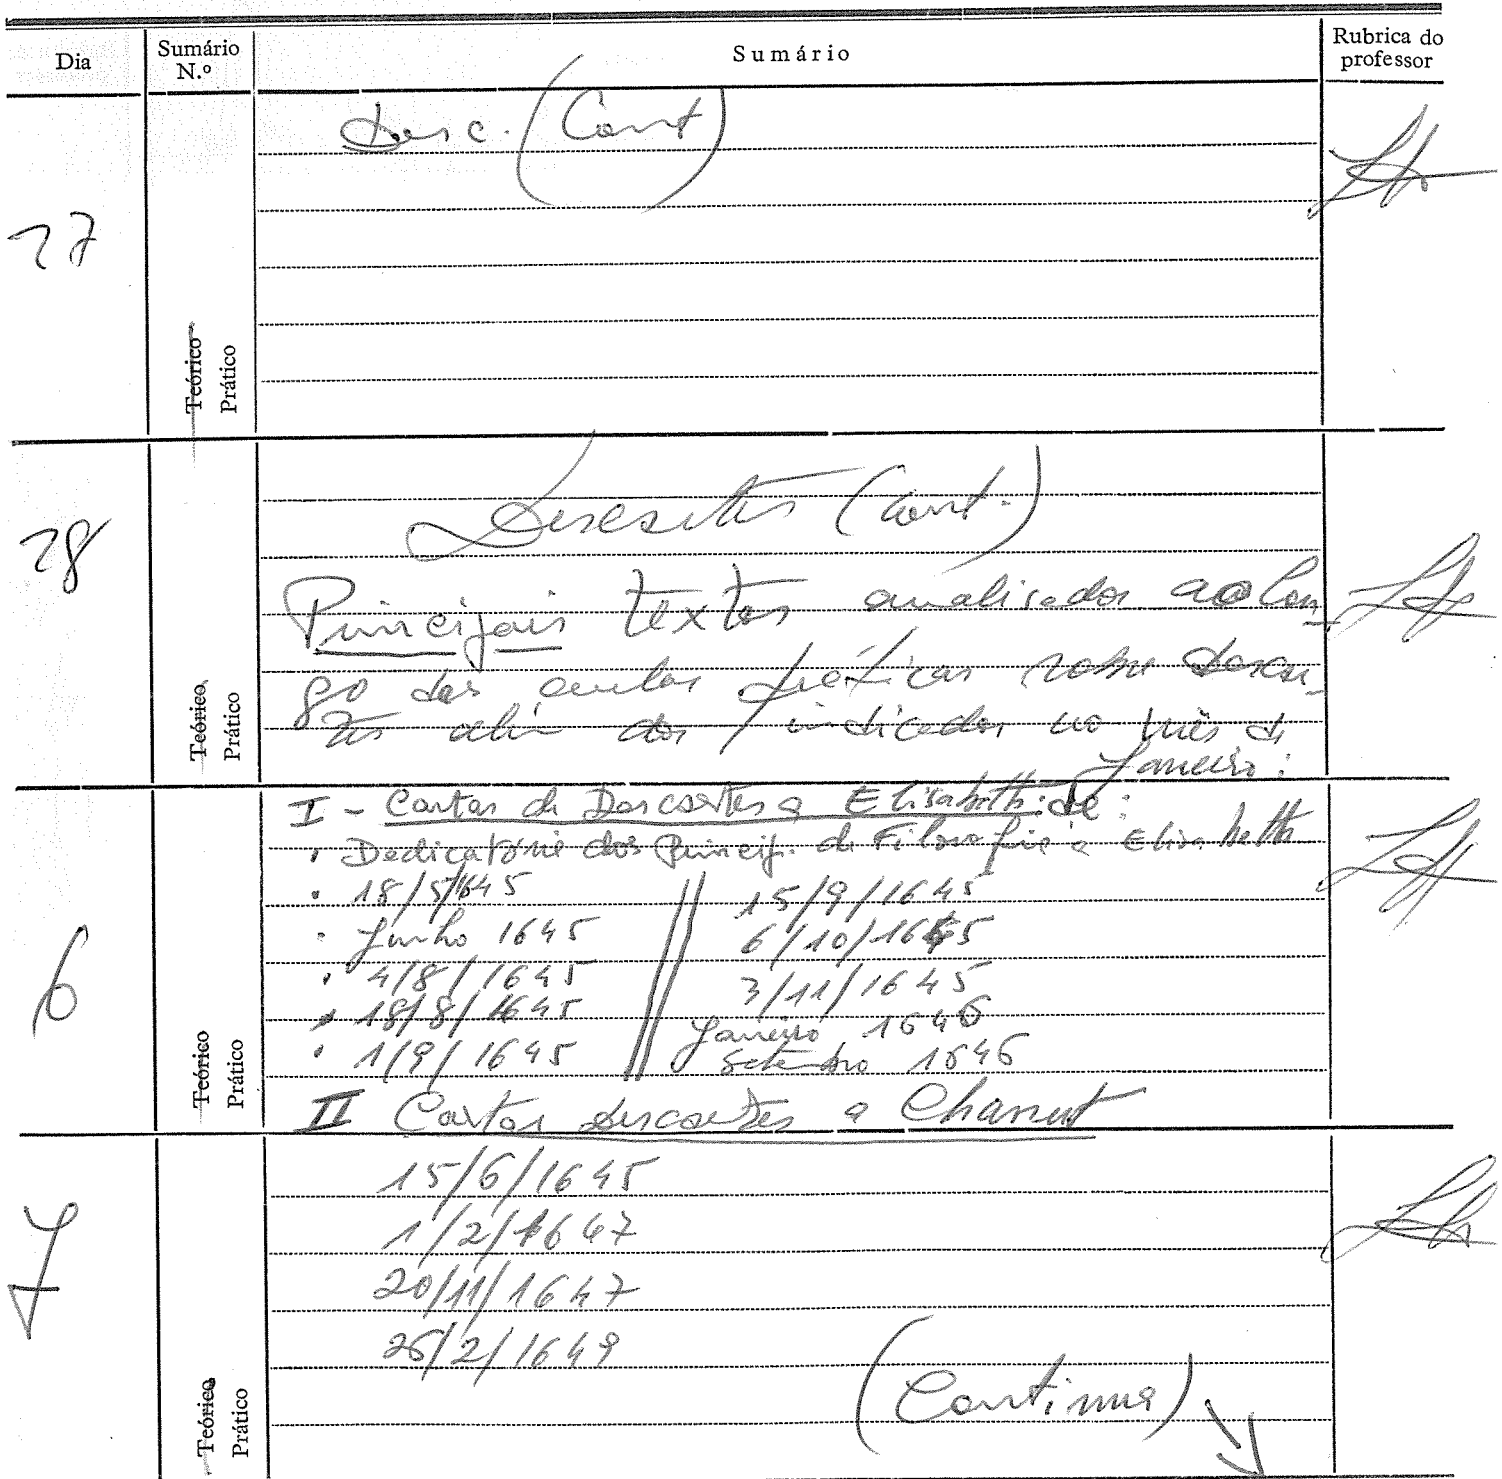 Dia
Sumário
N.º
Sumário
Rubrica do
professor
27
Desc. (Cont)
Teórico
Prático
28
Descartes (Cont.)
Principais textos analisados ao lon-
go das aulas práticas sobre Descar-
tes além dos indicados no mês de
Janeiro:
Teórico
Prático
6
I - Cartas de Descartes a Elisabeth de:
. Dedicatória dos Princíp. de Filosofia a Elisabeth
. 18/5/1645 // 15/9/1645
. Junho 1645 6/10/1645
. 4/8/1645 3/11/1645
. 18/8/1645 Janeiro 1646
. 1/9/1645 Setembro 1646
II Cartas Descartes a Chanut
Teórico
Prático
7
15/6/1645
1/2/1647
20/11/1647
26/2/1649
(Continua)
Teórico
Prático